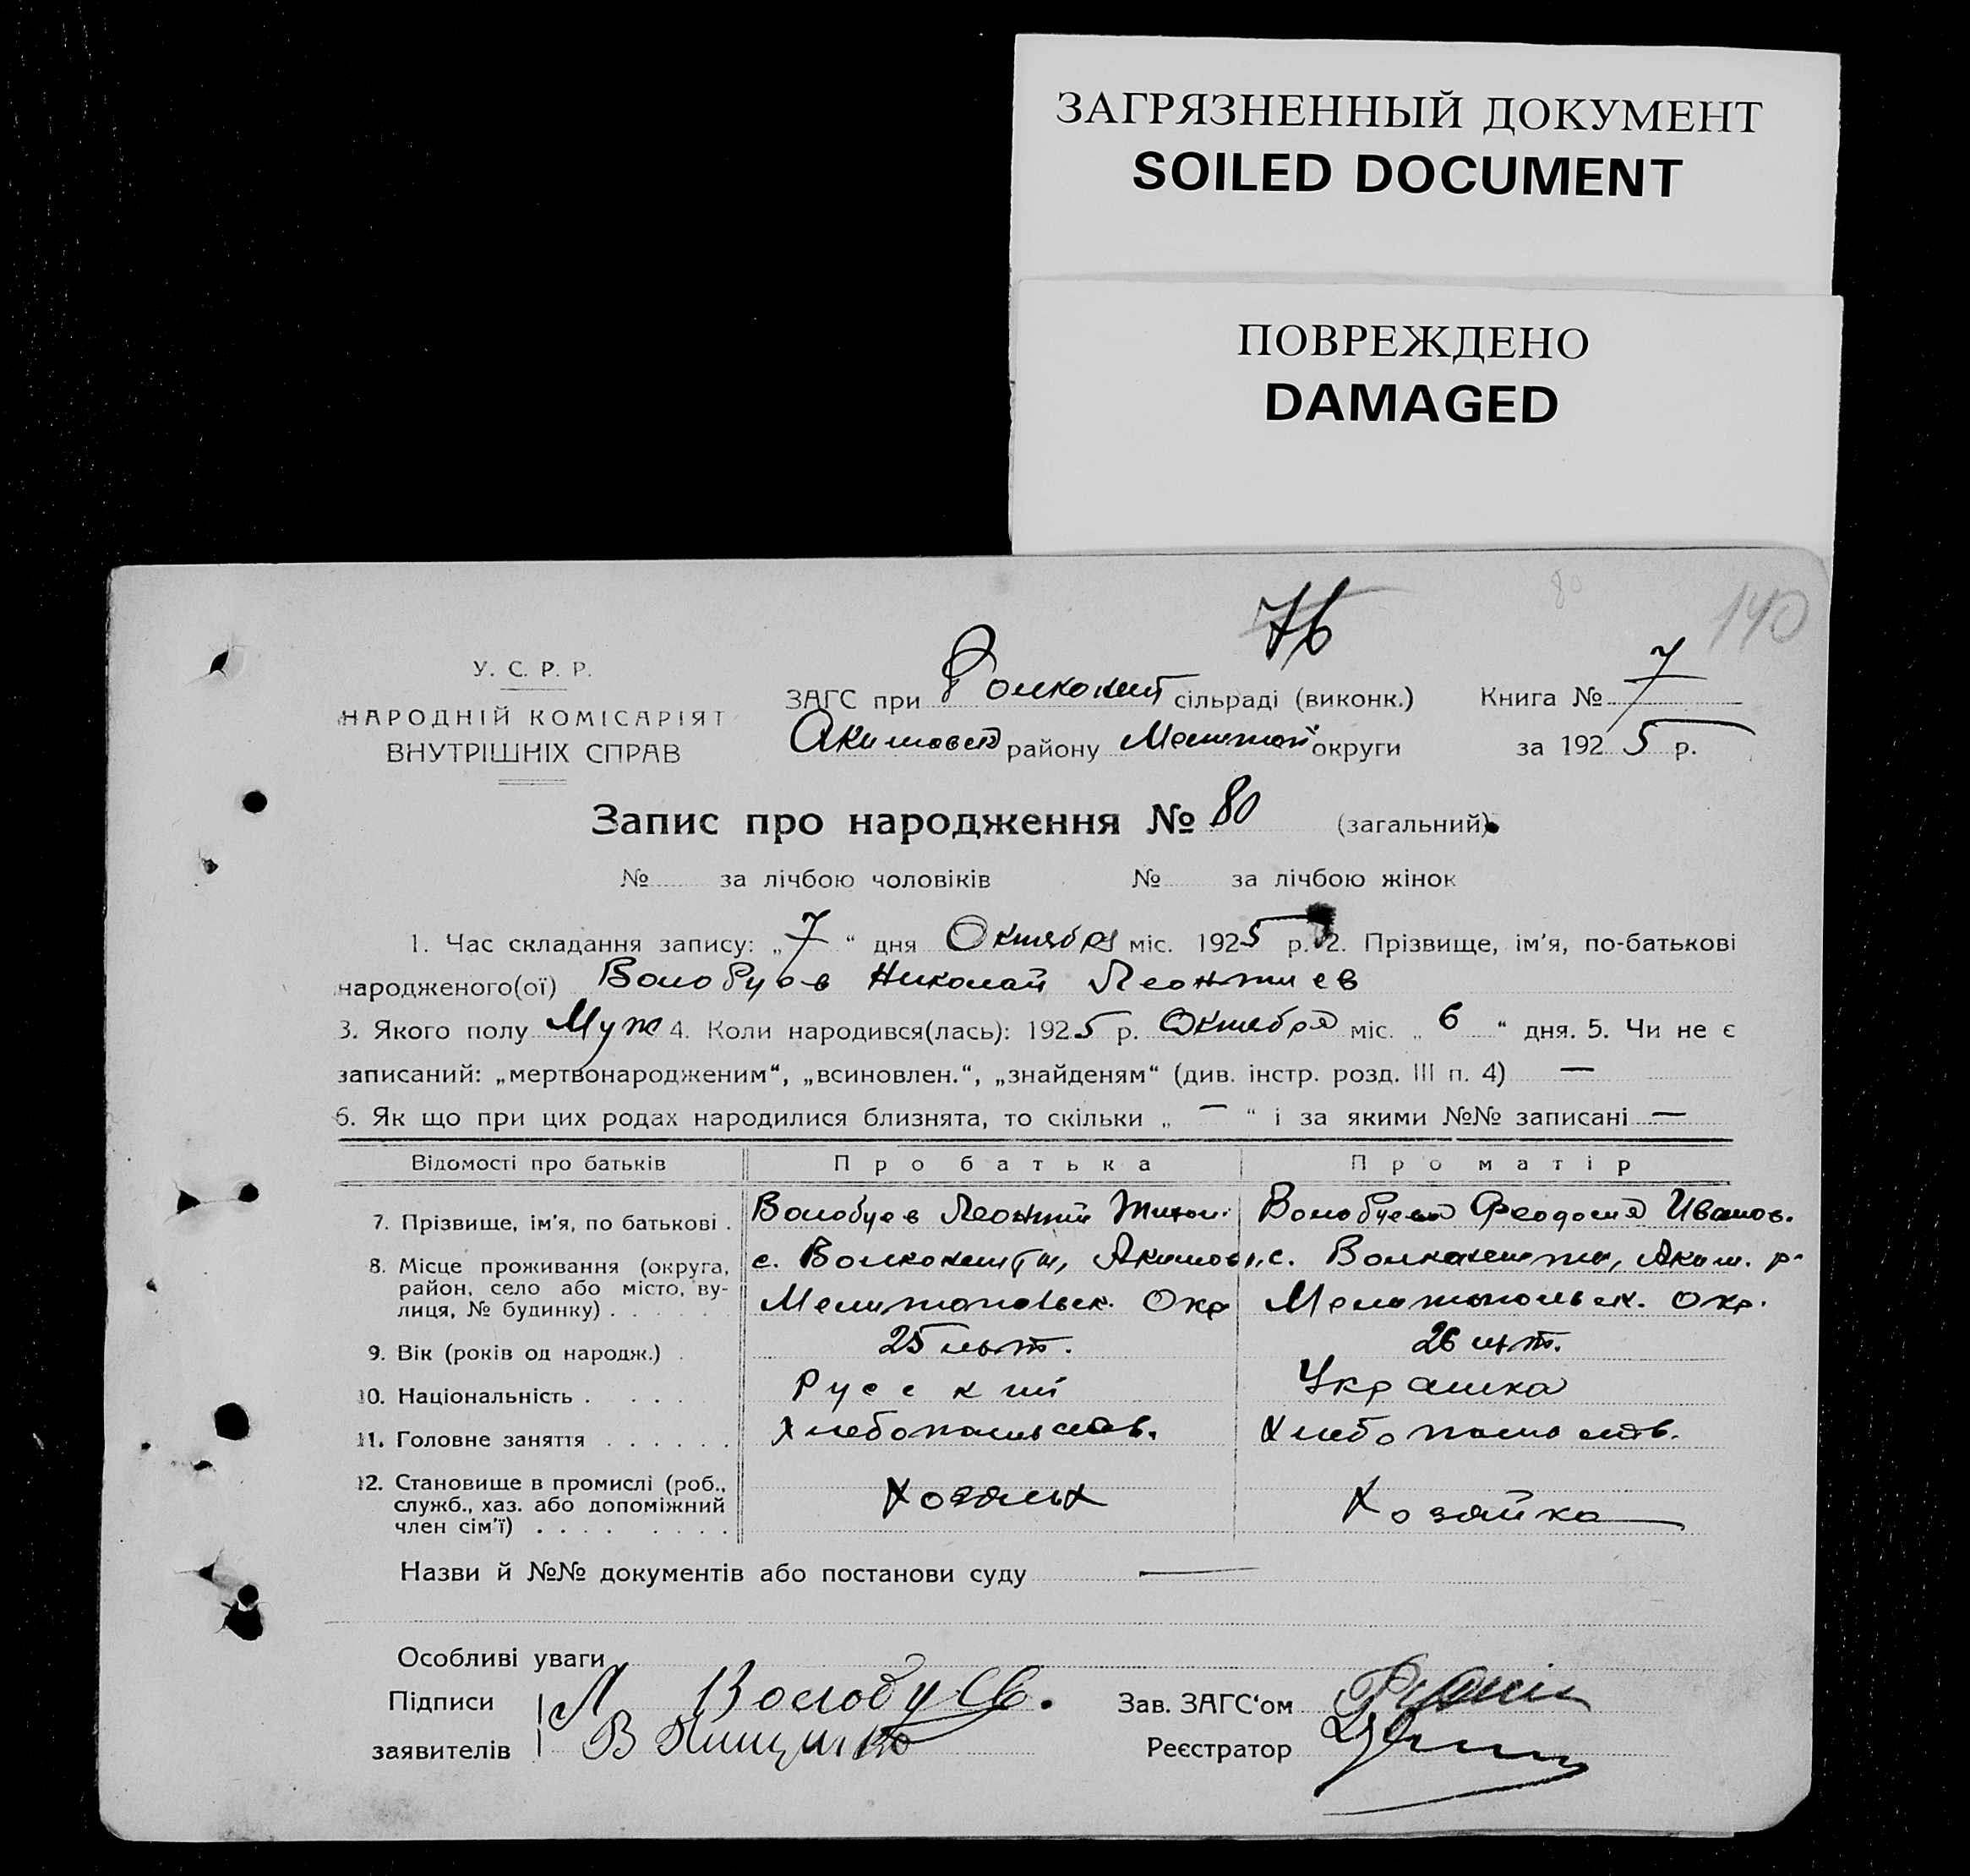 ЗАГРЯЗНЕННЫЙ ДОКУМЕНТ
SOILED DOCUMENT
ПОВРЕЖДЕНО
DAMAGED
80 140
76
У. С. Р. Р.
НАРОДНІЙ КОМІСАРІЯТ
ВНУТРІШНІХ СПРАВ
ЗАГС при сільраді (виконк.) Книга № 7
району округи за 1925 р.
Запис про народження № 80 (загальний)
№ за лічбою чоловіків № за лічбою жінок
1. Час складання запису: „7“ дня Октября міс. 1925 р. 2. Прізвище, ім'я, по-батькові
народженого(ої) Волобуев Николай Леонтиев
3. Якого полу Муж 4. Коли народився(лась): 1925 р. Октября міс. „6“ дня. 5. Чи не є
записаний: „мертвонародженим“, „всиновлен.“, „знайденям“ (див. інстр. розд. III п. 4) —
6. Як що при цих родах народилися близнята, то скільки „—“ і за якими №№ записані —
Відомості про батьків Про батька Про матір
7. Прізвище, ім'я, по батькові . Волобуев Леонтий Волобуева Феодосия Иванов.
8. Місце проживання (округа, с. с. Аким. р.
район, село або місто, ву-
лиця, № будинку) . . . . Мелитопольск. Окр Мелитопольск. Окр.
9. Вік (років од народж.) . 25 лет. 26 лет.
10. Національність . . . . Русский Украинка
11. Головне заняття . . . . . . Хлебопашеств. Хлебопашеств.
12. Становище в промислі (роб., Хозяин Хозяйка
служб., хаз. або допоміжний
член сім'ї) . . . . . . . .
Назви й №№ документів або постанови суду —
Особливі уваги
Підписи Л Волобуев. Зав. ЗАГС‘ом
заявителів В Реєстратор